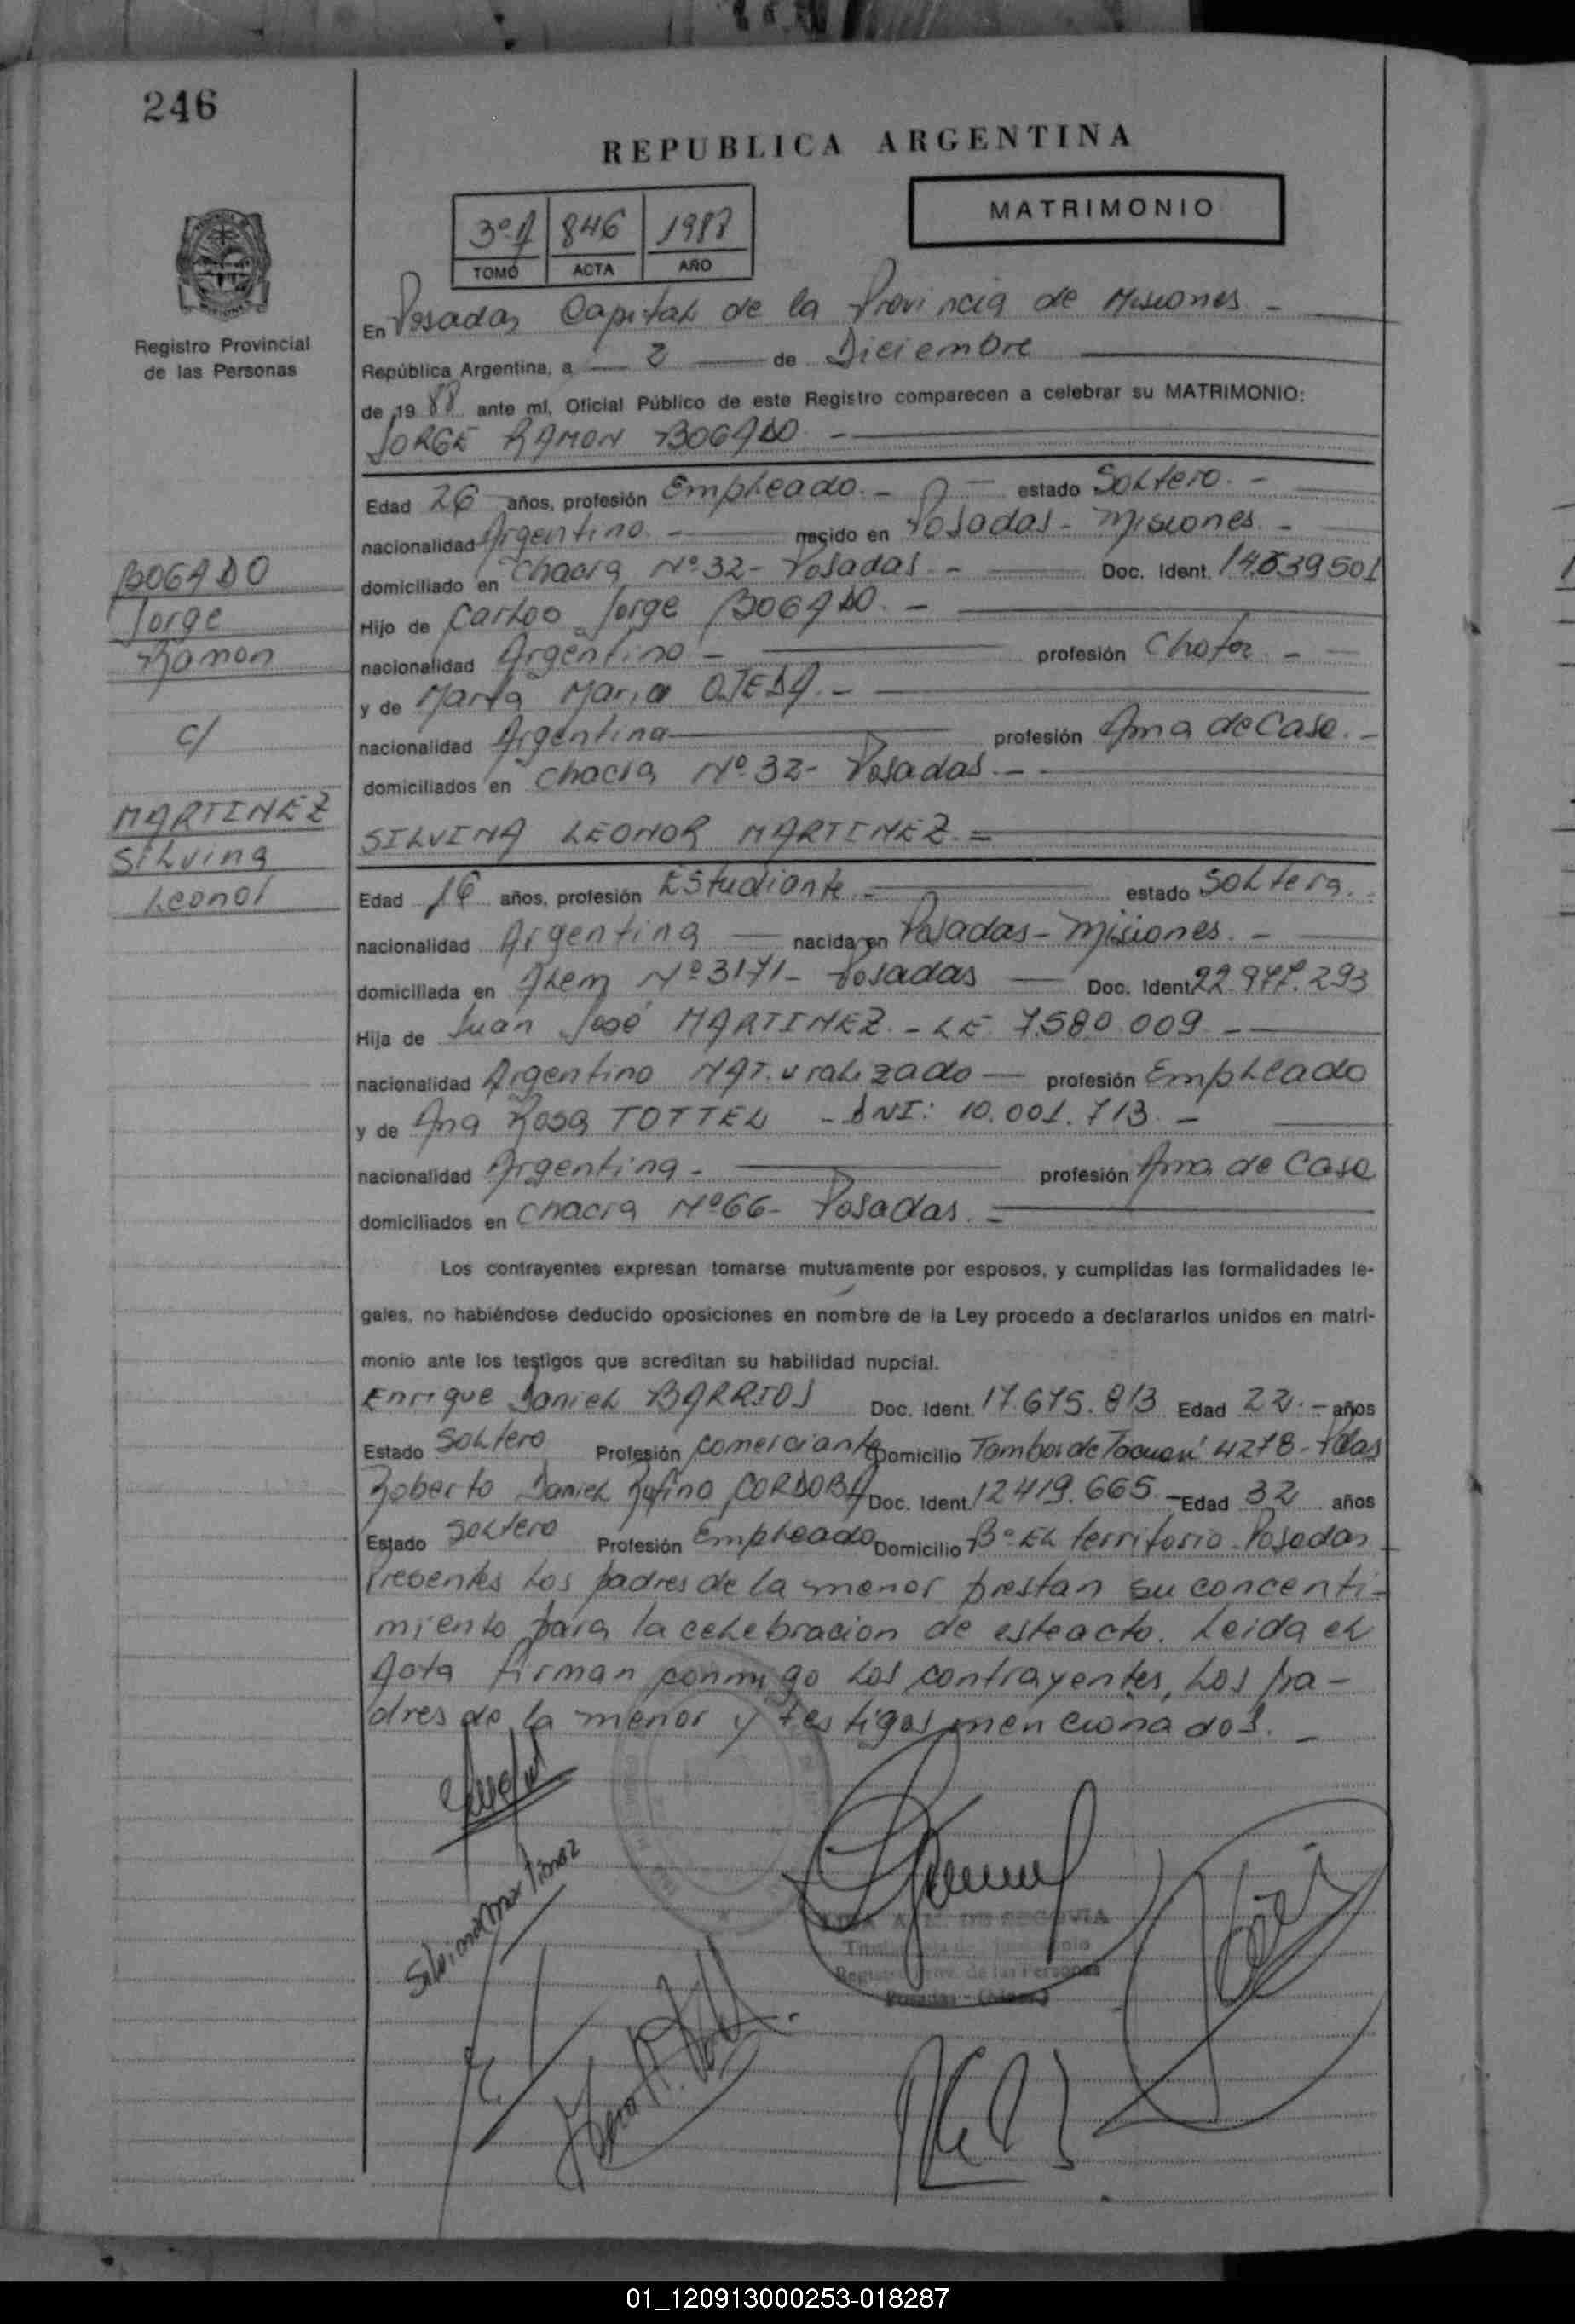 246
REPUBLICA ARGENTINA
MATRIMONIO
3º A 846 1988
TOMO ACTA AÑO
Registro Provincial
de las Personas
En Posadas Capital de la Provincia de Misiones -
República Argentina, a 2 de Diciembre
de 1988 ante mí, Oficial Público de este Registro comparecen a celebrar su MATRIMONIO:
JORGE RAMON BOGADO. -
Edad 26 años, profesión Empleado. - estado Soltero. -
nacionalidad Argentino. - nacido en Posadas - Misiones. -
domiciliado en Chacra Nº 32 - Posadas. - Doc. Ident. 14.639501
Hijo de Carlos Jorge BOGADO. -
nacionalidad Argentino - profesión Chofer. -
y de Marta Maria OJEDA. -
nacionalidad Argentina profesión Ama de Casa. -
domiciliados en Chacra Nº 32 - Posadas. -
BOGADO
Jorge
Ramon
c/
MARTINEZ
Silvina
Leonor
SILVINA LEONOR MARTINEZ. =
Edad 16 años, profesión Estudiante. - estado Soltera.
nacionalidad Argentina nacida en Posadas - Misiones. -
domiciliada en Alem Nº 3171 - Posadas Doc. Ident. 22.977.293
Hija de Juan José MARTINEZ. - LE. 7.580.009 -
nacionalidad Argentino NAT.uralizado profesión Empleado
y de Ana Rosa TOTTEL - DNI: 10.001.713. -
nacionalidad Argentina. - profesión Ama de Casa
domiciliados en Chacra Nº 66 - Posadas. -
Los contrayentes expresan tomarse mutuamente por esposos, y cumplidas las formalidades le-
gales, no habiéndose deducido oposiciones en nombre de la Ley procedo a declararlos unidos en matri-
monio ante los testigos que acreditan su habilidad nupcial.
Enrique Daniel BARRIOS Doc. Ident. 17.675.813 Edad 22. - años
Estado Soltero Profesión Comerciante Domicilio Tambor de Tacuarí 4278 - Pdas
Roberto Daniel Rufino CORDOBA Doc. Ident. 12419.665 - Edad 32 años
Estado Soltero Profesión Empleado Domicilio Bº El territorio - Posadas
Presentes los padres de la menor prestan su concenti-
miento para la celebracion de este acto. Leida el
Acta firman conmigo los contrayentes, los pa-
dres de la menor y testigos mencionados. -
Silvina Martinez
DE SEGOVIA
Registro Prov. de las Personas
Posadas - (Mnes.)
01_120913000253-018287